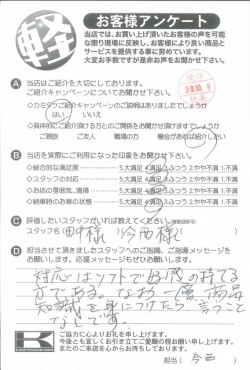 軽 お客様アンケート
当店では、お買い上げ頂いたお客様の声を可能
な限り現場に反映し、お客様により良い商品と
サービスを提供する事に努めています。
大変お手数ですが是非お声をお聞かせ下さい。
A 当店はご紹介を大切にしております。
ご紹介キャンペーンについてお聞かせ下さい。
30.10.9
＜カミタケご紹介キャンペーンのご説明はありましたでしょうか
はい いいえ
＜具体的にご紹介頂ける方とのご関係をお聞かせ頂けますでしょうか
ご親族 ご友人 職場の方 機会があれば紹介したい
B 当店を実際にご利用になった印象をお聞かせ下さい。
総合的な満足度 5.大満足 4.満足 3.ふつう 2.やや不満 1.不満
スタッフの対応 5.大満足 4.満足 3.ふつう 2.やや不満 1.不満
お店の雰囲気、清掃 5.大満足 4.満足 3.ふつう 2.やや不満 1.不満
納車時のお車の状態 5.大満足 4.満足 3.ふつう 2.やや不満 1.不満
C 評価したいスタッフがいれば教えてください。
スタッフ名 田中様 今西様
D 担当させて頂きましたスタッフへのご指摘、ご指導メッセージを
お聞かせ下さい。ご指導、応援メッセージもお願いします。
対応はソフトで好感の持てる
方である。なお一層、商品
知識を身につけたら、言うこと
なしです。
K
ご協力に心よりお礼を申し上げます。
今後とも宜しくお引き立てご愛顧の程お願い申し上げます。
またのご来店を心からお待ちしております。
担当（ 今西 ）